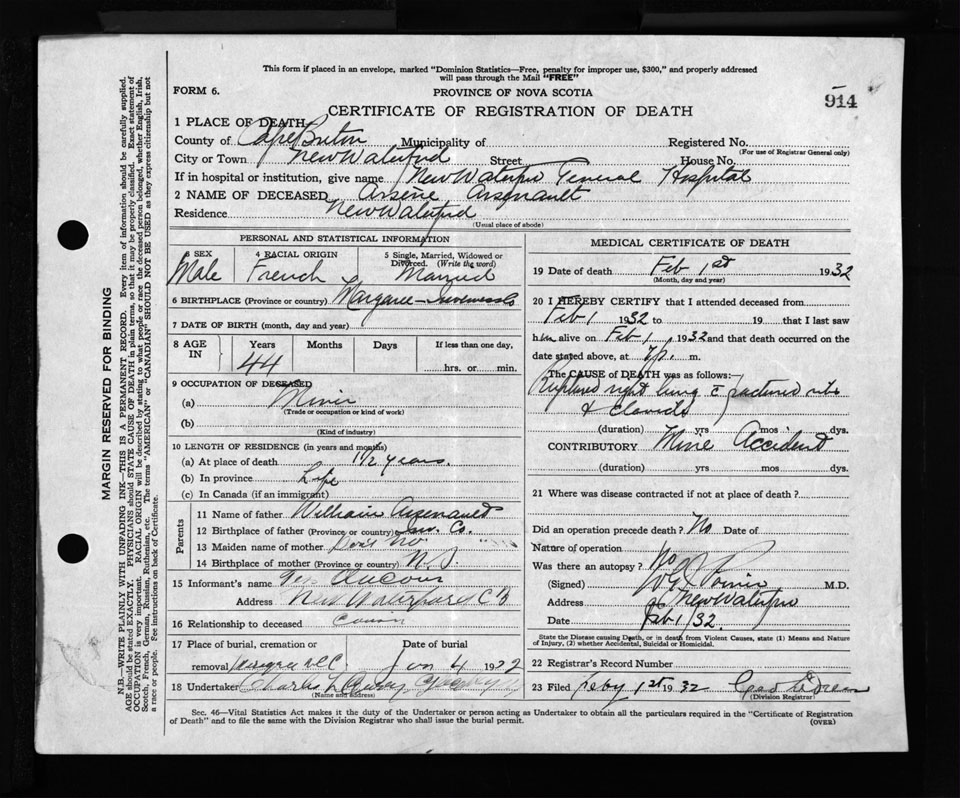 This form if placed in an envelope, marked "Dominion Statistics—Free, penalty for improper use, $300," and properly addressed
will pass through the Mail "FREE"
FORM 6.
PROVINCE OF NOVA SCOTIA
914
CERTIFICATE OF REGISTRATION OF DEATH
1 PLACE OF DEATH
County of Cape Breton Municipality of Registered No.
(For use of Registrar General only)
City or Town New Waterford Street House No.
If in hospital or institution, give name New Waterford General Hospital
2 NAME OF DECEASED Arsène Arsenault
Residence New Waterford
(Usual place of abode)
PERSONAL AND STATISTICAL INFORMATION
3 SEX 4 RACIAL ORIGIN 5 Single, Married, Widowed or
Divorced. (Write the word)
Male French Married
6 BIRTHPLACE (Province or country) Margaree - Inverness Co
7 DATE OF BIRTH (month, day and year)
8 AGE IN Years Months Days If less than one day,
44 hrs. or min.
9 OCCUPATION OF DECEASED
(a) Miner
(Trade or occupation or kind of work)
(b)
(Kind of industry)
10 LENGTH OF RESIDENCE (in years and months)
(a) At place of death 1 1/2 years.
(b) In province Life
(c) In Canada (if an immigrant)
Parents
11 Name of father William Arsenault
12 Birthplace of father (Province or country) Inv. Co.
13 Maiden name of mother Don't No
14 Birthplace of mother (Province or country) N.S.
15 Informant's name AuCoin
Address New Waterford C B
16 Relationship to deceased Cousin
17 Place of burial, cremation or Date of burial
removal Margaree N.C. 4 1932
18 Undertaker Charles
(Name and address)
MEDICAL CERTIFICATE OF DEATH
19 Date of death Feb 1st 1932
(Month, day and year)
20 I HEREBY CERTIFY that I attended deceased from
Feb 1 1932 to 19 that I last saw
him alive on Feb 1 1932 and that death occurred on the
date stated above, at 7 p. m.
The CAUSE of DEATH was as follows:
Ruptured right lung c̄ fractured ribs
& clavicle
(duration) yrs mos. dys.
CONTRIBUTORY Mine Accident
(duration) yrs mos. dys.
21 Where was disease contracted if not at place of death?
Did an operation precede death? No Date of
Nature of operation
Was there an autopsy? No
(Signed) M.D.
Address New Waterford
Date Feb 1/32.
State the Disease causing Death, or in death from Violent Causes, state (1) Means and Nature
of Injury, (2) whether Accidental, Suicidal or Homicidal.
22 Registrar's Record Number
23 Filed Feby 1st 1932 Geo
(Division Registrar)
Sec. 46—Vital Statistics Act makes it the duty of the Undertaker or person acting as Undertaker to obtain all the particulars required in the "Certificate of Registration
of Death" and to file the same with the Division Registrar who shall issue the burial permit.
(OVER)
MARGIN RESERVED FOR BINDING
N.B.—WRITE PLAINLY WITH UNFADING INK—THIS IS A PERMANENT RECORD. Every item of information should be carefully supplied.
AGE should be stated EXACTLY. PHYSICIANS should STATE CAUSE OF DEATH in plain terms, so that it may be properly classified. Exact statement of
OCCUPATION is very important. RACIAL ORIGIN will be described by stating to what people or race the deceased person belonged, whether English, Irish,
Scotch, French, German, Russian, Ruthenian, etc. The terms "AMERICAN" or "CANADIAN" SHOULD NOT BE USED as they express citizenship but not
a race or people. See instructions on back of Certificate.